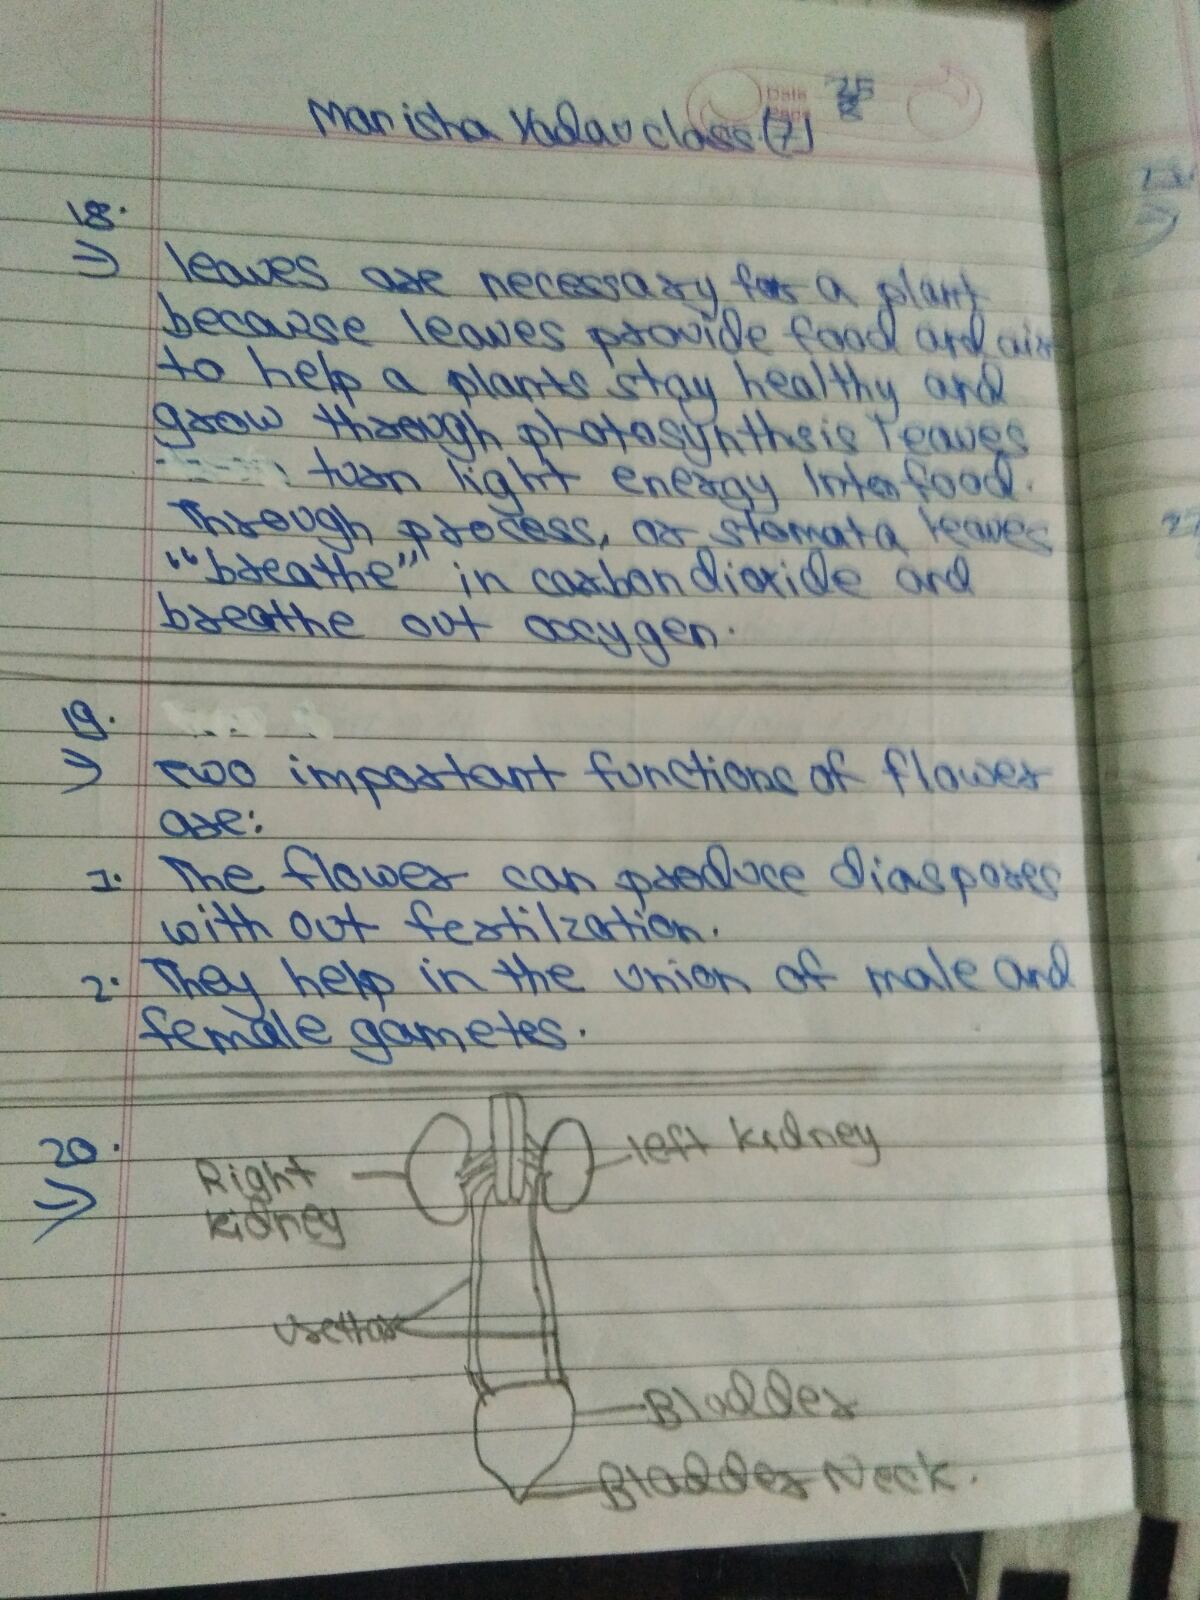 Date
Manisha Yadav class.(7)
18.
⇒ leaves are necessary for a plant
because leaves provide food and air
to help a plants stay healthy and
grow through photosynthsis leaves
turn light energy Into food.
Through process, or stomata leaves
"breathe" in carbondioxide and
breathe out oxygen.
19.
⇒ Two important functions of flower
are:
1. The flower can produce diaspores
with out fertilzation.
2. They help in the union of male and
female gametes.
20.
⇒
Right left kidney
kidney
Bladder
Bladder Neck.